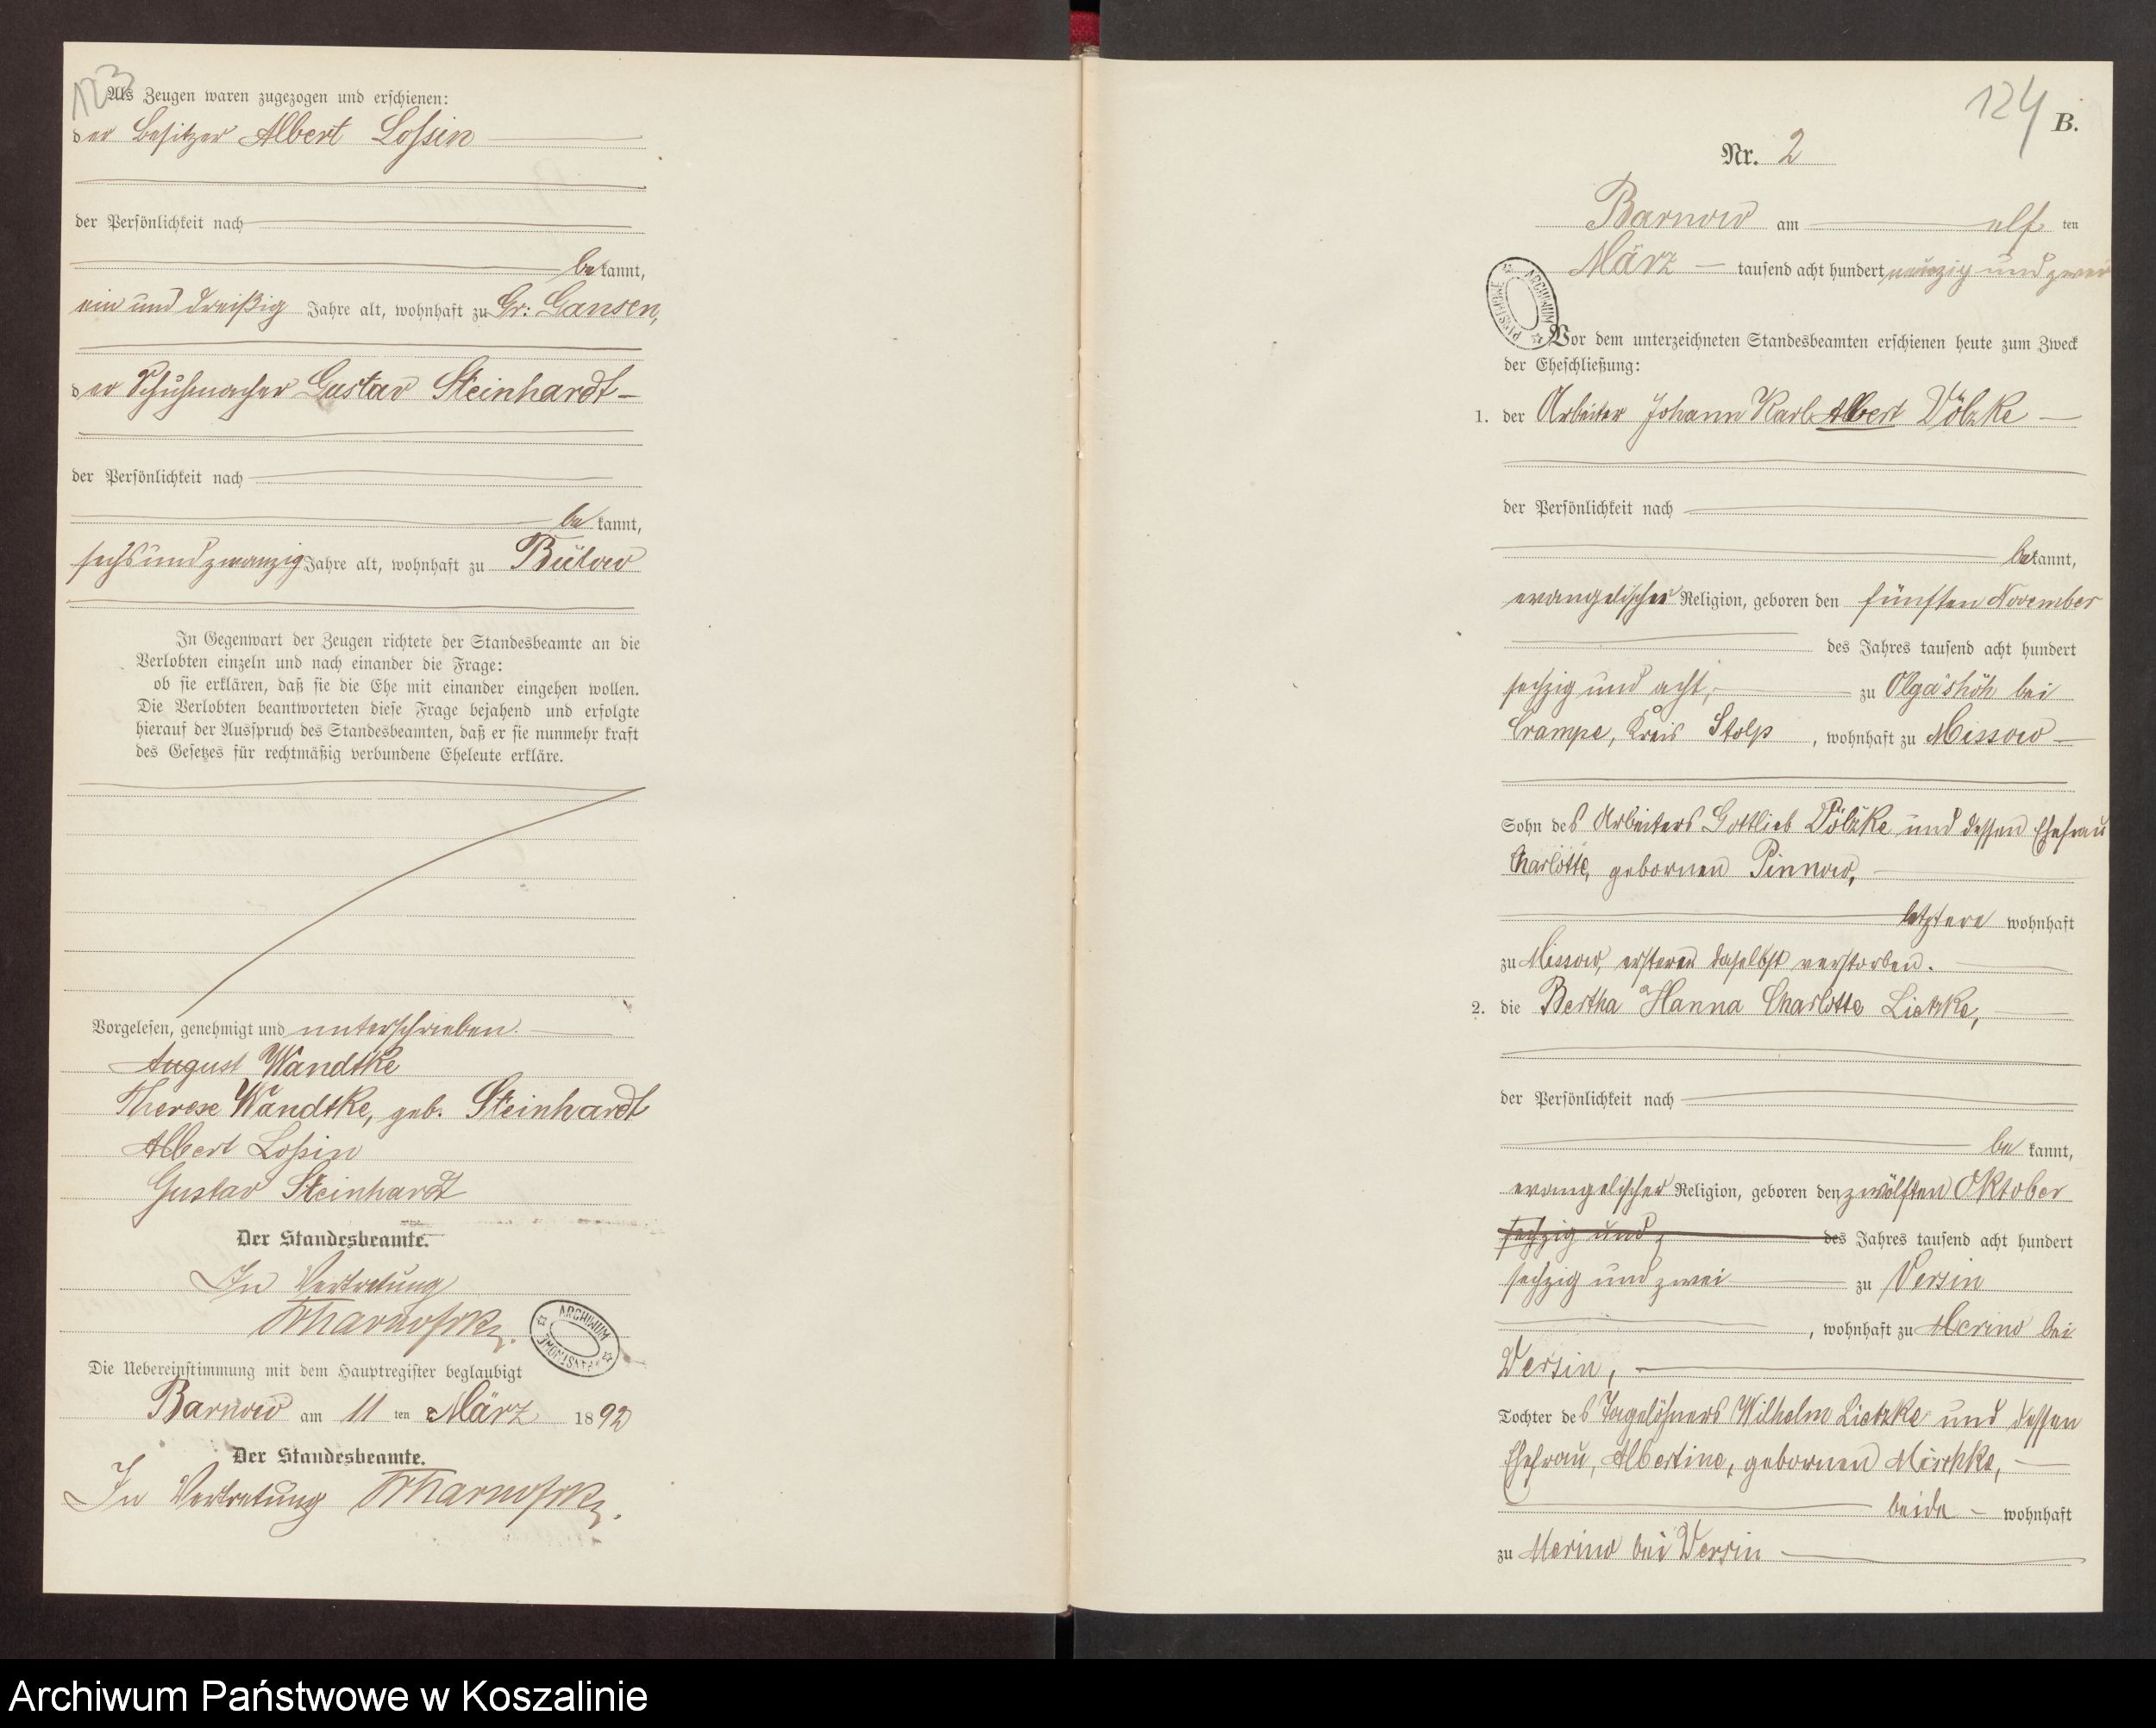 123
Als Zeugen waren zugezogen und erschienen:
der Besitzer Albert Lossin
der Persönlichkeit nach
bekannt,
ein und dreißig Jahre alt, wohnhaft zu Gr: Gansen,
der Schuhmacher Gustav Steinhardt
der Persönlichkeit nach
bekannt,
sechsundzwanzig Jahre alt, wohnhaft zu Bütow
In Gegenwart der Zeugen richtete der Standesbeamte an die
Verlobten einzeln und nach einander die Frage:
ob sie erklären, daß sie die Ehe mit einander eingehen wollen.
Die Verlobten beantworteten diese Frage bejahend und erfolgte
hierauf der Ausspruch des Standesbeamten, daß er sie nunmehr kraft
des Gesetzes für rechtmäßig verbundene Eheleute erkläre.
Vorgelesen, genehmigt und unterschrieben.
August Wandtke
Therese Wandtke, geb. Steinhardt
Albert Lossin
Gustav Steinhardt
Der Standesbeamte.
In Vertretung
ARCHIWUM
Die Uebereinstimmung mit dem Hauptregister beglaubigt
Barnow am 11 ten März 1892
Der Standesbeamte.
In Vertretung
124
B.
Nr. 2
Barnow am elf ten
März tausend acht hundert neunzig und zwei
ARCHIWUM
Vor dem unterzeichneten Standesbeamten erschienen heute zum Zweck
der Eheschließung:
1. der Arbeiter Johann Karl Albert Völzke
der Persönlichkeit nach
bekannt,
evangelischer Religion, geboren den fünften November
des Jahres tausend acht hundert
sechzig und acht, zu Olgashöh bei
Crampe, Kreis Stolp, wohnhaft zu Missow
Sohn des Arbeiters Gottlieb Völzke und dessen Ehefrau
Charlotte, gebornen Pinnow,
letztere wohnhaft
zu Missow, ersterer daselbst verstorben.
2. die Bertha Hanna Charlotte Lietzke,
der Persönlichkeit nach
bekannt,
evangelischer Religion, geboren den zwölften Oktober
sechzig und z des Jahres tausend acht hundert
sechzig und zwei zu Versin
, wohnhaft zu Merino bei
Versin,
Tochter des Tagelöhners Wilhelm Lietzke und dessen
Ehefrau, Albertine, gebornen Mischke,
beide wohnhaft
zu Merino bei Versin
Archiwum Państwowe w Koszalinie